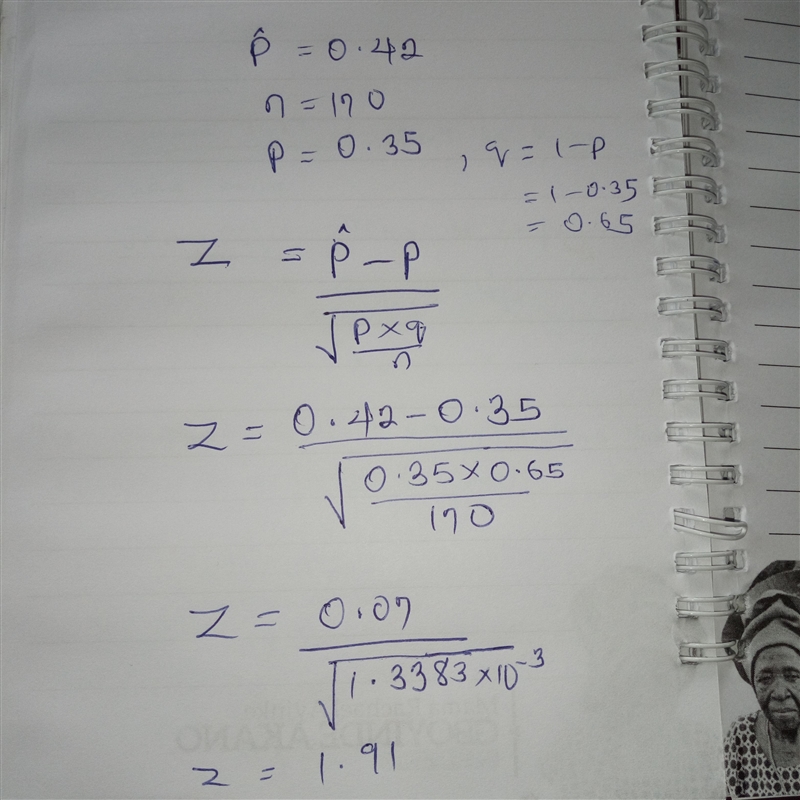 p̂ = 0.42
n = 170
p = 0.35 , q = 1-p
= 1-0.35
= 0.65
Z = p̂ - p
√p×q
n
Z = 0.42-0.35
√0.35×0.65
170
Z = 0.07
√1.3383×10⁻³
z = 1.91